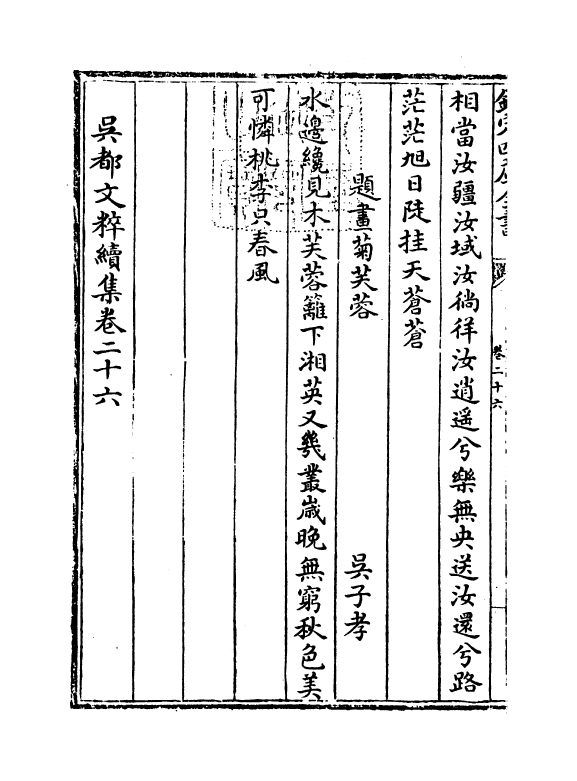 欽定四庫全書
卷二十六
相當汝疆汝域汝徜徉汝逍遥兮樂無央送汝還兮路
茫茫旭日陡挂天蒼蒼
題畫菊芙蓉
吳子孝
水邊纔見木芙蓉籬下湘英又幾叢嵗晚無窮秋色美
可憐桃李只春風
吳都文粹續集卷二十六